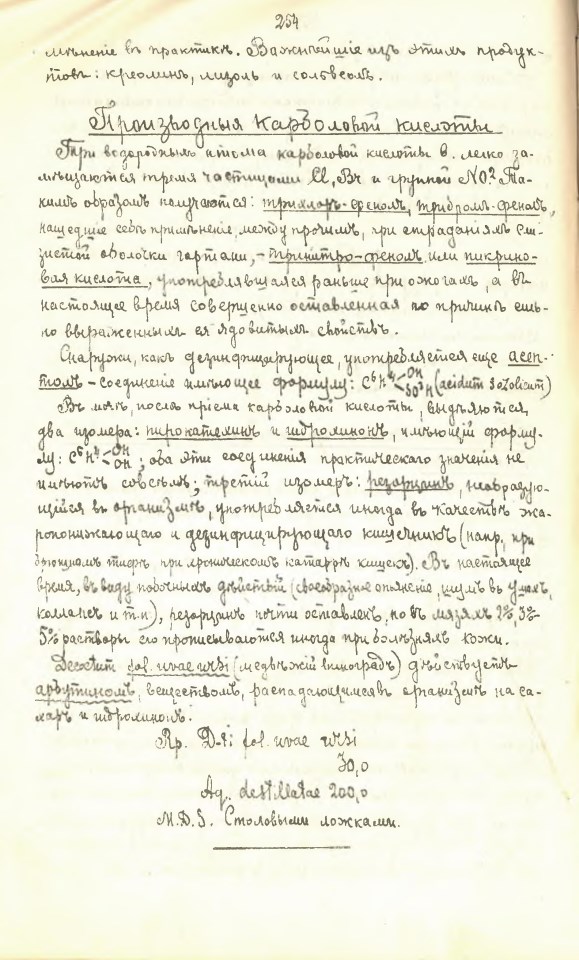 254
мѣненіе въ практикѣ. Важнѣйшіе изъ этихъ продук-
товъ: креолинъ, лизолъ и сольвеолъ.
Производныя карболовой кислоты
Три водородныхъ атома карболовой кислоты в. легко за-
мѣщаются тремя частицами Cl, Br и группой NO². Та-
кимъ образомъ получаются: трихлоръ-фенолъ, трибромъ-фенолъ,
нашедшіе себѣ примѣненіе, между прочимъ, при страданіяхъ сли-
зистой оболочки гортани, – тринитро-фенолъ или пикрино-
вая кислота, употреблявшаяся раньше при ожогахъ, а въ
настоящее время совершенно оставленная по причинѣ силь-
но выраженныхъ ея ядовитыхъ свойствъ.
Снаружи, какъ дезинфицирующее, употребляется еще асеп-
толъ – соединеніе имѣющее формулу: C⁶H⁴<OH SO³H (acidum sozolicum)
Въ мочѣ, послѣ пріема карболовой кислоты, выдѣляются
два изомера: пирокатехинъ и гидрохинонъ, имѣющій форму-
лу: C⁶H⁴<OH OH; оба эти соединенія практическаго значенія не
имѣютъ совсѣмъ; третій изомеръ: резорцинъ, необразую-
щійся въ организмѣ, употребляется иногда въ качествѣ жа-
ропонижающаго и дезинфицирующаго кишечникъ (напр. при
брюшномъ тифѣ, при хроническомъ катаррѣ кишекъ). Въ настоящее
время, въ виду побочныхъ дѣйствій (своеобразное опьяненіе, шумъ въ ушахъ,
коллапсъ и т.п.), резорцинъ почти оставленъ, но въ мазяхъ 2%, 3%-
5% растворы его прописываются иногда при болѣзняхъ кожи.
Decoctum fol. uvae ursi (медвѣжій виноградъ) дѣйствуетъ
арбутиномъ, веществомъ, распадающимся въ организмѣ на са-
харъ и гидрохинонъ.
Rp. D-ti fol. uvae ursi
30,0
Aq. destillatae 200,0
M.D.S. Столовыми ложками.